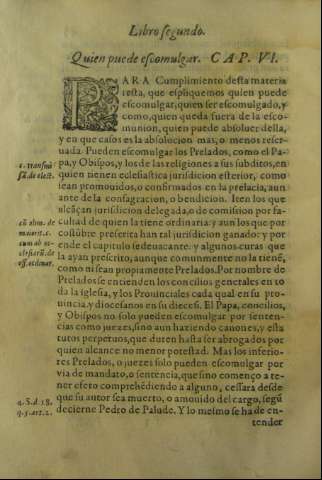 Libro segundo.
Quien puede escomulgar. CAP. VI.
PARA Cumplimiento desta materia
resta, que espliquemos quien puede
escomulgar, quien ser escomulgado, y
como, quien queda fuera de la esco-
munion, quien puede absoluer della,
y en que casos es la absolucion mas, o menos reser-
uada. Pueden escomulgar los Prelados, como el Pa-
pa, y Obispos, y los de las religiones a sus subditos, en
quien tienen eclesiastica jurisdicion esterior, como
sean promouidos, o confirmados en la prelacia, aun
ante de la consagracion, o bendicion. Iten los que
alcāçan jurisdicion delegada, o de comision por fa-
cultad de quien la tiene ordinaria: y aun los que por
costūbre prescrita han tal jurisdicion ganado: y por
ende el capitulo sedeuacante: y algunos curas que
la ayan prescrito, aunque comunmente no la tienē,
como ni sean propiamente Prelados. Por nombre de
Prelados se entienden los concilios generales en to
da la iglesia, y los Prouinciales cada qual en su pro-
uincia, y diocesanos en su diocesi. El Papa, concilios,
y Obispos no solo pueden escomulgar por senten-
cias como juezes, sino aun haziendo canones, y esta
tutos perpetuos, que duren hasta ser abrogados por
quien alcance no menor potestad. Mas los inferio-
res Prelados, o juezes solo pueden escomulgar por
via de mandato, o sentencia, que sino começo a te-
ner efeto comprehēdiendo a alguno, cessara desde
que su autor sea muerto, o amouido del cargo, segū
decierne Pedro de Palude. Y lo mesmo se ha de en-
tender
c. transmis
sā. de elect.
cū abm. de
maiorit. c.
cum ab ec-
clesiarū. de
off. ordinar.
q. 5. d. 18.
q. 5. art. 2.